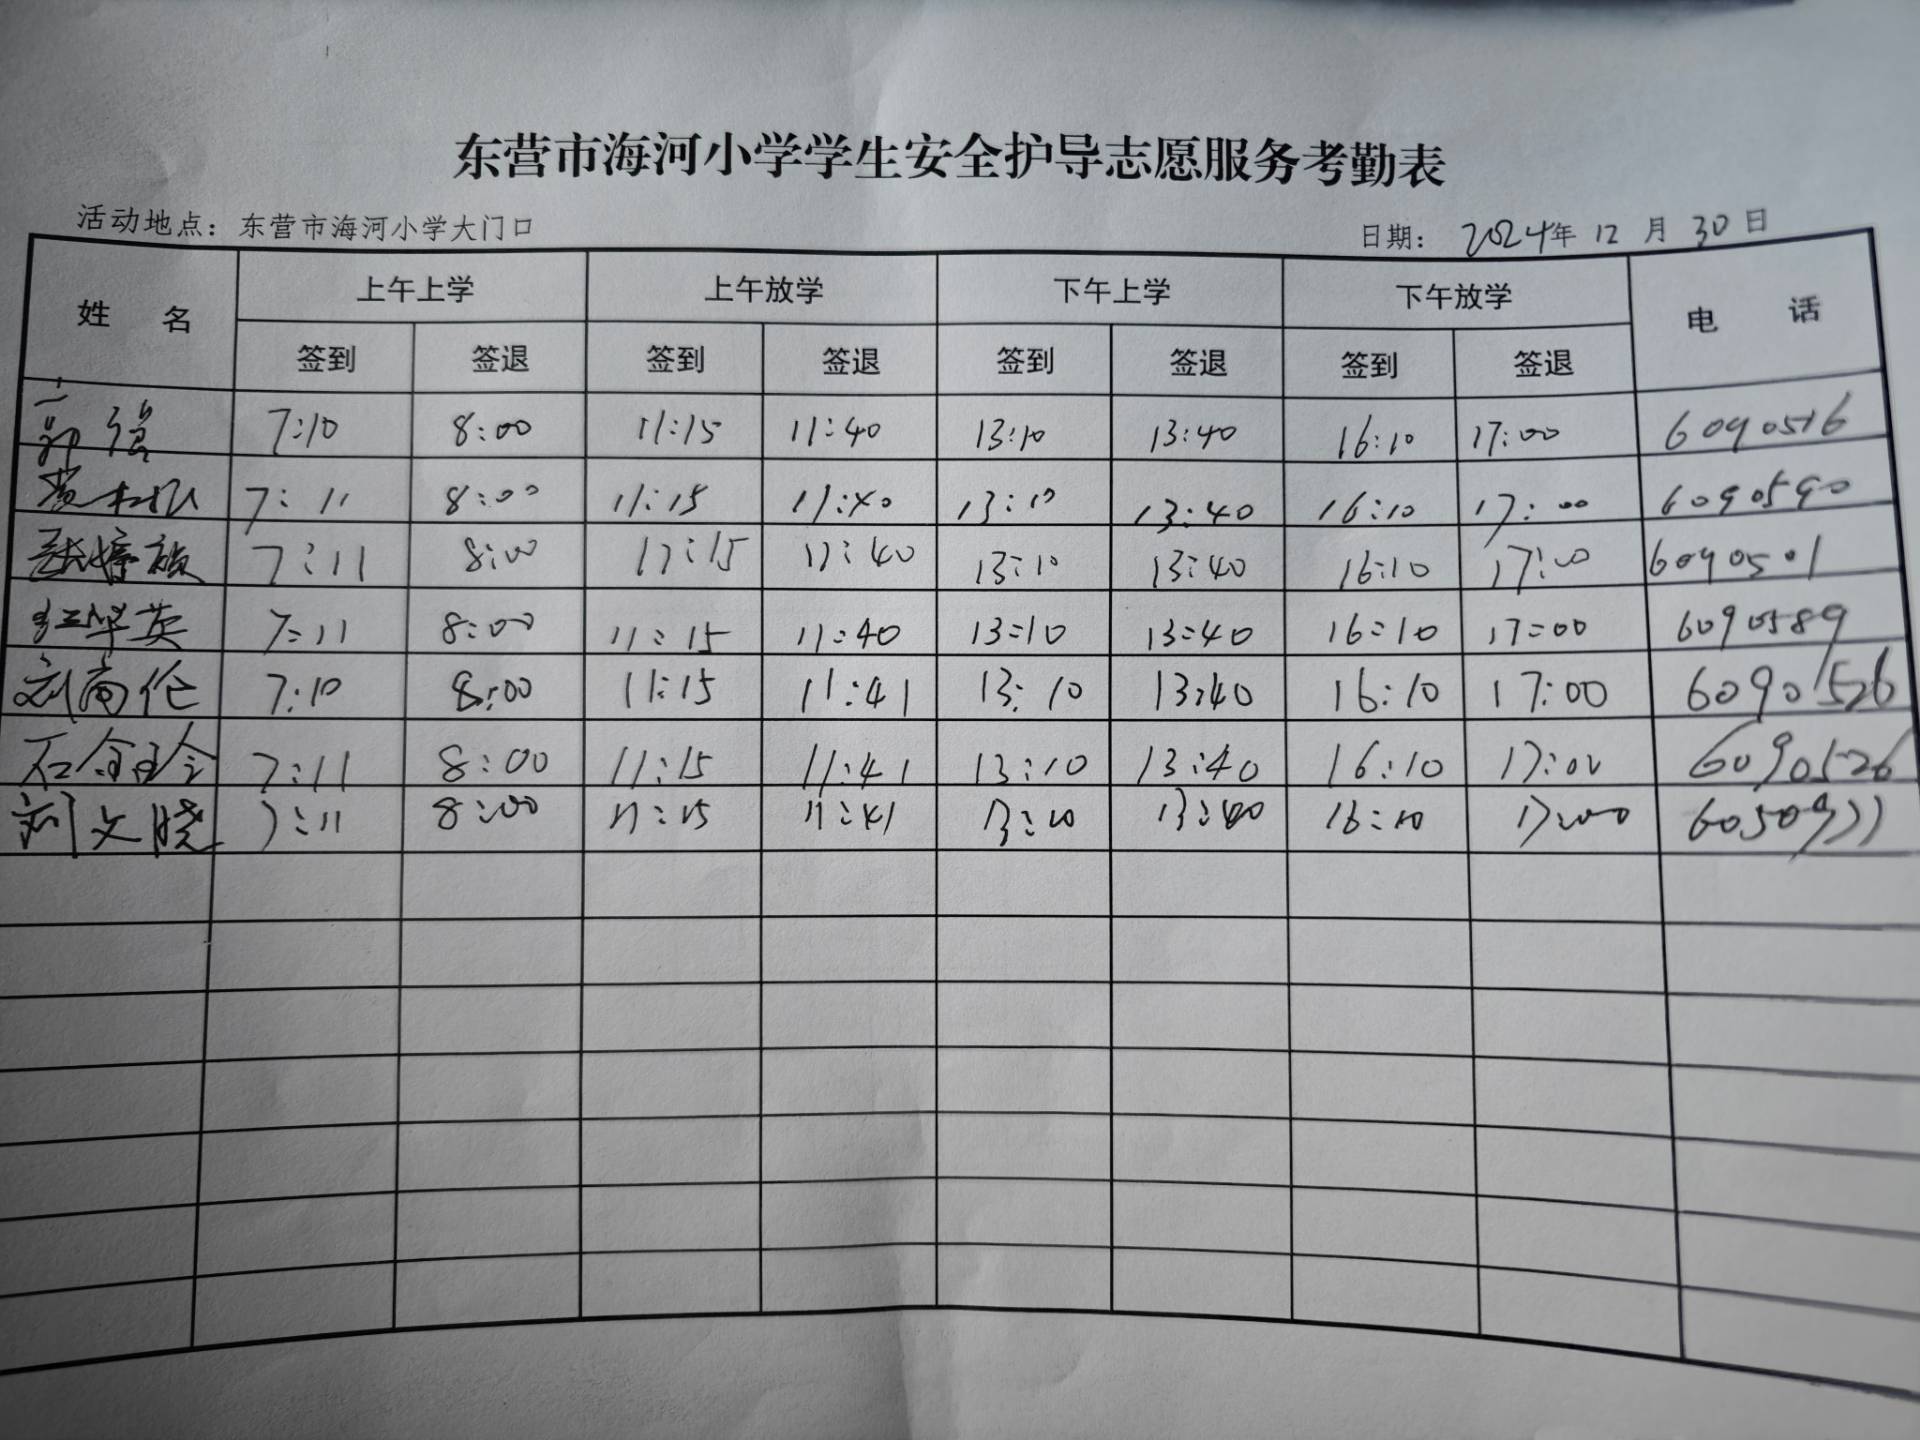 东营市海河小学学生安全护导志愿服务考勤表
活动地点：东营市海河小学大门口 日期：2024年 12 月 30 日
姓 名 上午上学 上午放学 下午上学 下午放学 电 话
签到 签退 签到 签退 签到 签退 签到 签退
郭强 7:10 8:00 11:15 11:40 13:10 13:40 16:10 17:00 6090516
7:11 8:00 11:15 11:40 13:10 13:40 16:10 17:00 6090590
7:11 8:00 11:15 11:40 13:10 13:40 16:10 17:00 6090501
7:11 8:00 11:15 11:40 13:10 13:40 16:10 17:00 6090589
刘高伦 7:10 8:00 11:15 11:41 13:10 13:40 16:10 17:00 6090526
7:11 8:00 11:15 11:41 13:10 13:40 16:10 17:00 6090526
刘文晓 7:11 8:00 11:15 11:41 13:10 13:40 16:10 17:00